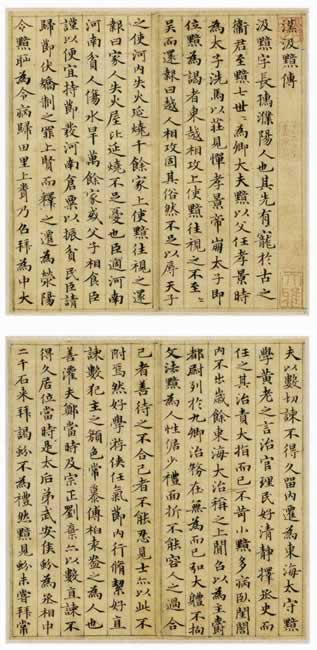 漢汲黯傳
汲黯字長孺濮陽人也其先有寵於古之
衛君至黯七世〻為卿大夫黯以父任孝景時
為太子洗馬以莊見憚孝景帝崩太子即
位黯為謁者東越相攻上使黯往視之不至〻
吳而還報曰越人相攻固其俗然不足以辱天子
之使河內失火延燒千餘家上使黯往視之還
報曰家人失火屋比延燒不足憂也臣過河南
河南貧人傷水旱萬餘家或父子相食臣
謹以便宜持節發河南倉粟以振貧民臣請
歸節伏矯制之罪上賢而釋之遷為滎陽
令黯恥為令病歸田里上乃召拜為中大
夫以數切諫不得久留內遷為東海太守黯
學黃老之言治官理民好清靜擇丞史而
任之其治責大指而已不苛小黯多病臥閨閤
內不出歲餘東海大治稱之上聞召以為主爵
都尉列於九卿治務在無為而已弘大體不拘
文法黯為人性倨少禮面折不能容人之過合
己者善待之不合己者不能忍見士亦以此不
附焉然好學游俠任氣節內行脩絜好直
諫數犯主之顏色常慕傅柏袁盎之為人也
善灌夫鄭當時及宗正劉棄亦以數直諫不
得久居位當時是太后弟武安侯蚡為丞相中
二千石來拜謁蚡不為禮然黯見蚡未嘗拜常